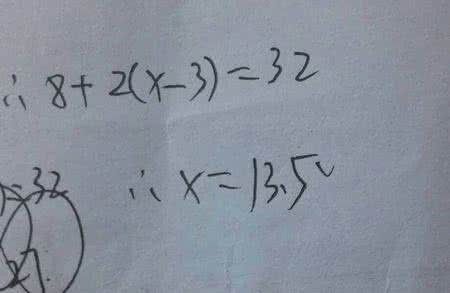 ∴ 8+2(x-3)=32
)=32 ∴ x=13.5